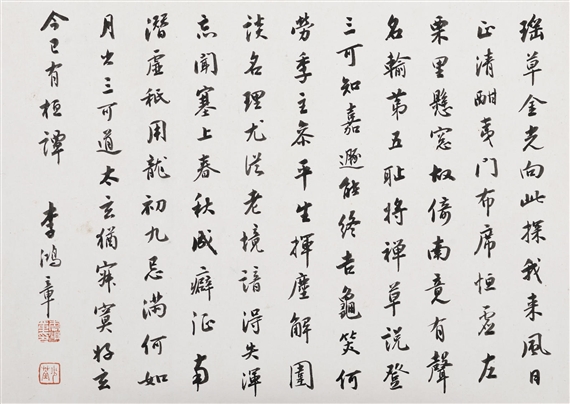 瑶草金光向此探我来風日
正清酣夷门布席恒虚左
栗里懸窓故倚南竟有聲
名輪第五耻将禅草説登
三可知嘉遯能终吉龜筴何
勞季主參平生揮麈解圍
談名理尤從老境諳得失渾
忘聞塞上春秋成癖征南
潛虚秖用龍初九忌满何如
月出三可道太玄猶寂寞好玄
今已有桓譚
李鴻章